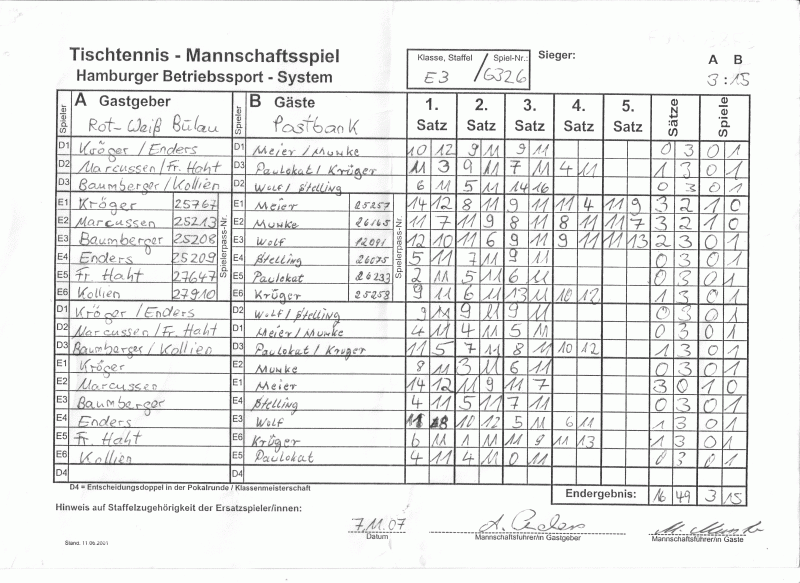 Tischtennis - Mannschaftsspiel
Hamburger Betriebssport - System
Klasse, Staffel Spiel-Nr.:
E3 / G326
Sieger:
A B
3:15
Spieler A Gastgeber Spieler B Gäste 1. Satz 2. Satz 3. Satz 4. Satz 5. Satz Sätze Spiele
Rot-Weiß Bülau Postbank
D1 Kröger / Enders D1 Meier / Munke 10 12 9 11 9 11 0 3 0 1
D2 Marcussen / Fr. Haht D3 Paulokat / Krüger 11 3 9 11 7 11 4 11 1 3 0 1
D3 Baumberger / Kollien D2 Wolf / Stelling 6 11 5 11 14 16 0 3 0 1
E1 Kröger 25767 E1 Meier 25257 14 12 8 11 9 11 11 4 11 9 3 2 1 0
E2 Marcussen 25213 E2 Munke 26165 11 7 11 9 8 11 8 11 11 7 3 2 1 0
E3 Baumberger 25208 E3 Wolf 12091 12 10 11 6 9 11 9 11 11 13 2 3 0 1
E4 Enders 25209 E4 Stelling 26075 5 11 7 11 9 11 0 3 0 1
E5 Fr. Haht 27647 E5 Paulokat 26233 2 11 5 11 6 11 0 3 0 1
E6 Kollien 27910 E6 Krüger 25258 9 11 6 11 13 11 10 12 1 3 0 1
Spielerpass-Nr.
Spielerpass-Nr.
D1 Kröger / Enders D2 Wolf / Stelling 9 11 9 11 9 11 0 3 0 1
D2 Marcussen / Fr. Haht D1 Meier / Munke 4 11 4 11 5 11 0 3 0 1
D3 Baumberger / Kollien D3 Paulokat / Krüger 11 5 7 11 8 11 10 12 1 3 0 1
E1 Kröger E2 Munke 8 11 3 11 6 11 0 3 0 1
E2 Marcussen E1 Meier 14 12 11 9 11 7 3 0 1 0
E3 Baumberger E4 Stelling 4 11 5 11 7 11 0 3 0 1
E4 Enders E3 Wolf 11 8 10 12 5 11 6 11 1 3 0 1
E5 Fr. Haht E6 Krüger 6 11 1 11 11 9 11 13 1 3 0 1
E6 Kollien E5 Paulokat 4 11 4 11 0 11 0 3 0 1
D4 D4
D4 = Entscheidungsdoppel in der Pokalrunde / Klassenmeisterschaft
Endergebnis: 16 49 3 15
Hinweis auf Staffelzugehörigkeit der Ersatzspieler/innen:
7.11.07
Datum Mannschaftsführer/in Gastgeber Mannschaftsführer/in Gäste
Stand. 11.06.2001